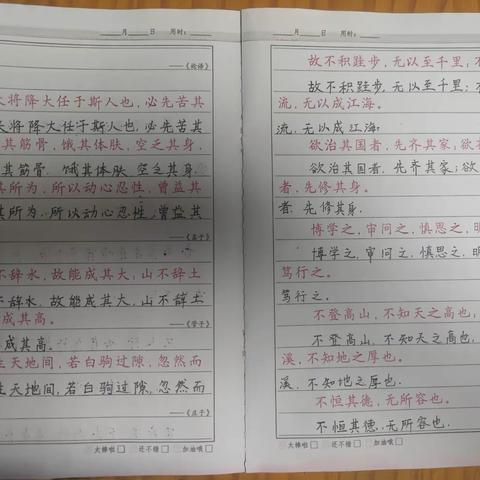 月 日 用时:
——《论语》
天将降大任于斯人也,必先苦其
天将降大任于斯人也,必先苦其
其筋骨,饿其体肤,空乏其身,
其筋骨,饿其体肤,空乏其身,
其所为,所以动心忍性,曾益其
其所为,所以动心忍性,曾益其
——《孟子》
不辞水,故能成其大;山不辞土
不辞水,故能成其大;山不辞土
成其高。
——《管子》
成其高。
生天地间,若白驹过隙,忽然而
生天地间,若白驹过隙,忽然而
——《庄子》
大棒啦 还不错 加油哦
月 日 用时:
故不积跬步,无以至千里;不
故不积跬步,无以至千里;不
流,无以成江海。
流,无以成江海。
欲治其国者,先齐其家;欲
欲治其国者,先齐其家;欲
者,先修其身。
者,先修其身。
博学之,审问之,慎思之,明
博学之,审问之,慎思之,明
笃行之。
笃行之。
不登高山,不知天之高也;
不登高山,不知天之高也,
溪,不知地之厚也。
溪,不知地之厚也.
不恒其德,无所容也。
不恒其德,无所容也.
大棒啦 还不错 加油哦